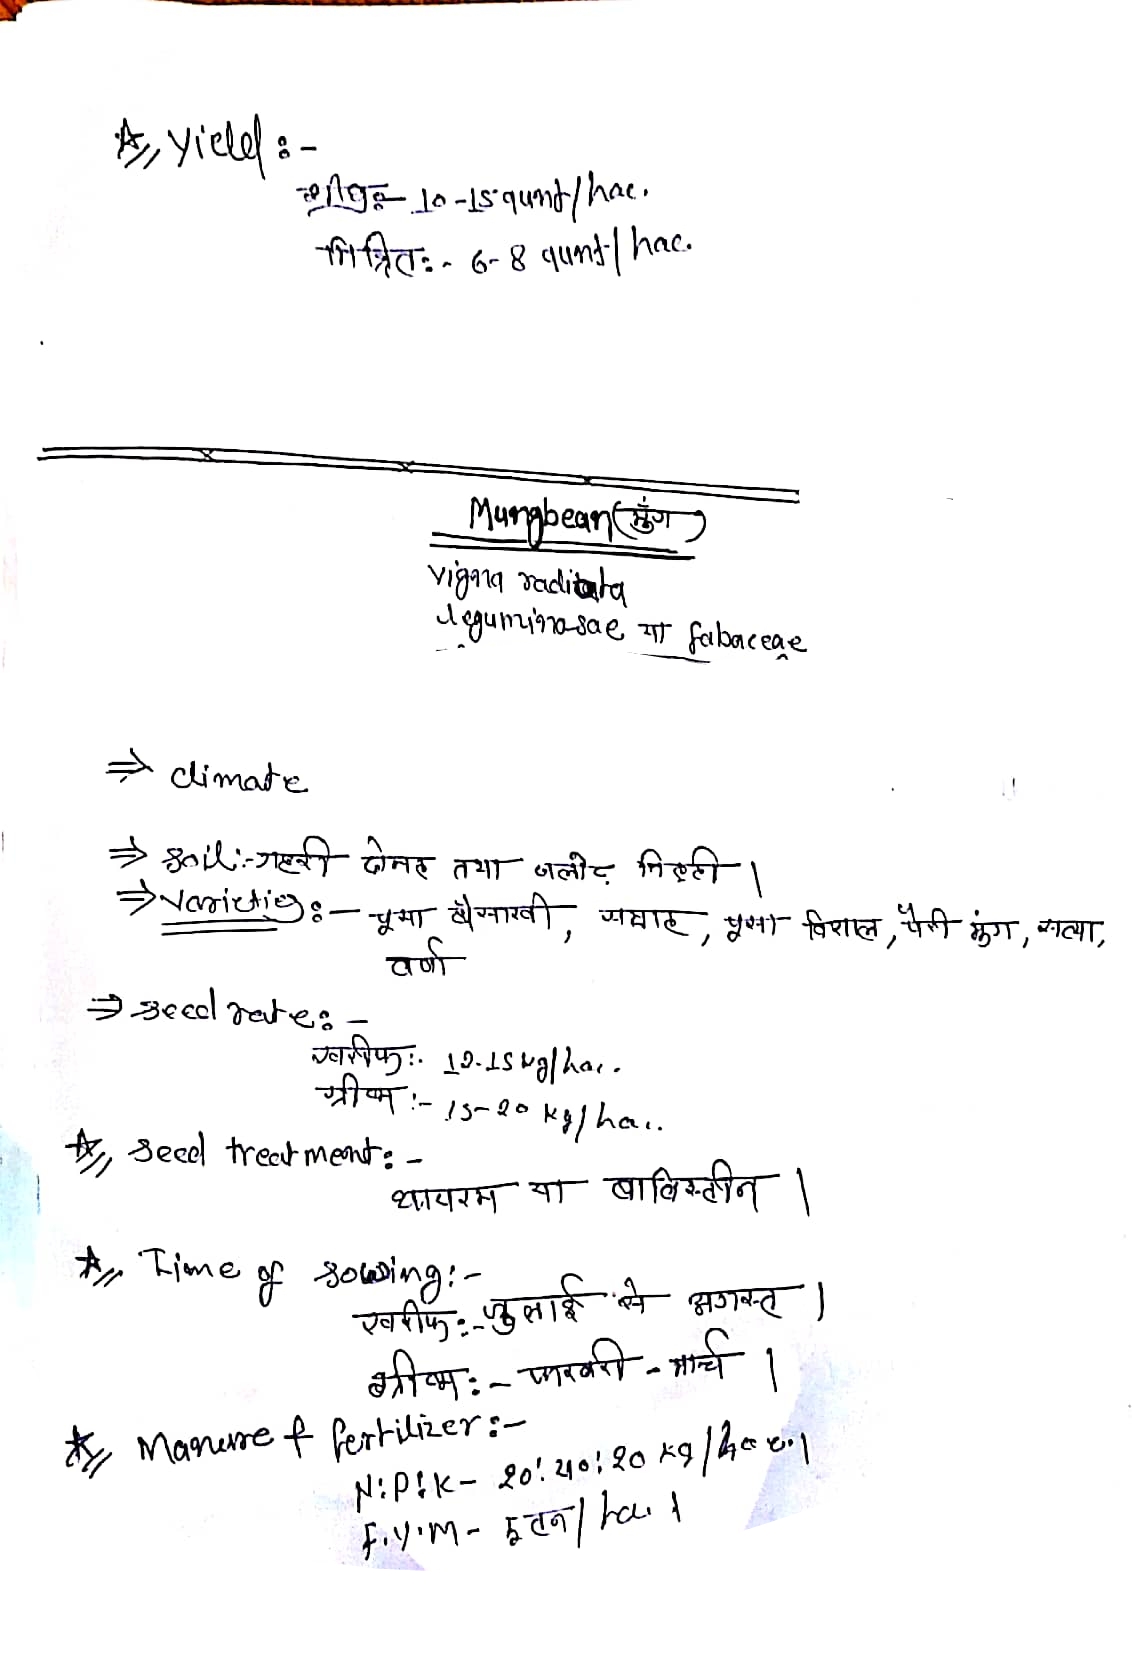 Yield :-
10-15 qunt/hac.
मिश्रित:- 6-8 qunt/hac.
Mungbean (मूँग)
Vigna radiata
leguminosae या fabaceae
⇒ climate
⇒ Soil:- गहरी दोमट तथा जलोढ़ मिट्टी ।
⇒ Varieties :- पूसा बैसाखी, सम्राट, पूसा विशाल, पैरी मुंग, सत्या,
वर्षा
⇒ seed rate :-
खरीफ:- 12-15 kg/hac.
ग्रीष्म :- 15-20 kg/hac.
Seed treatment :-
थायरम या बाविस्तीन ।
Time of sowing :-
खरीफ:- जुलाई से अगस्त ।
ग्रीष्म:- फरवरी - मार्च ।
Manure & fertilizer :-
N:P:K - 20:40:20 kg/hac. ।
F.Y.M - 5 टन/ha. ।